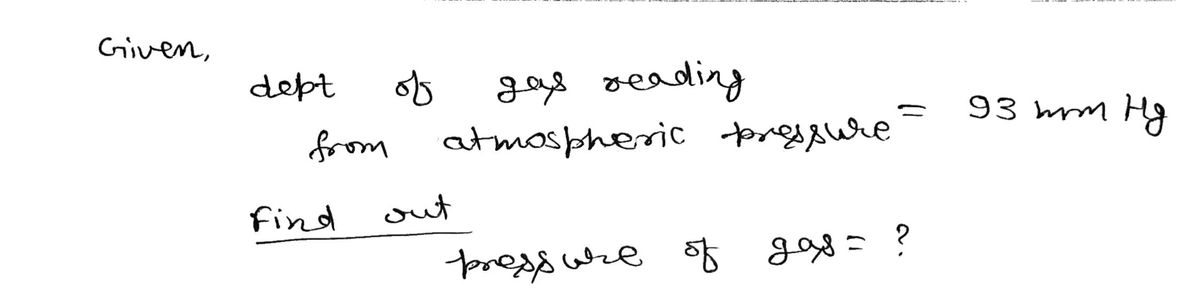 Given,
dept of gas reading
from atmospheric pressure = 93 mm Hg
Find out
pressure of gas = ?